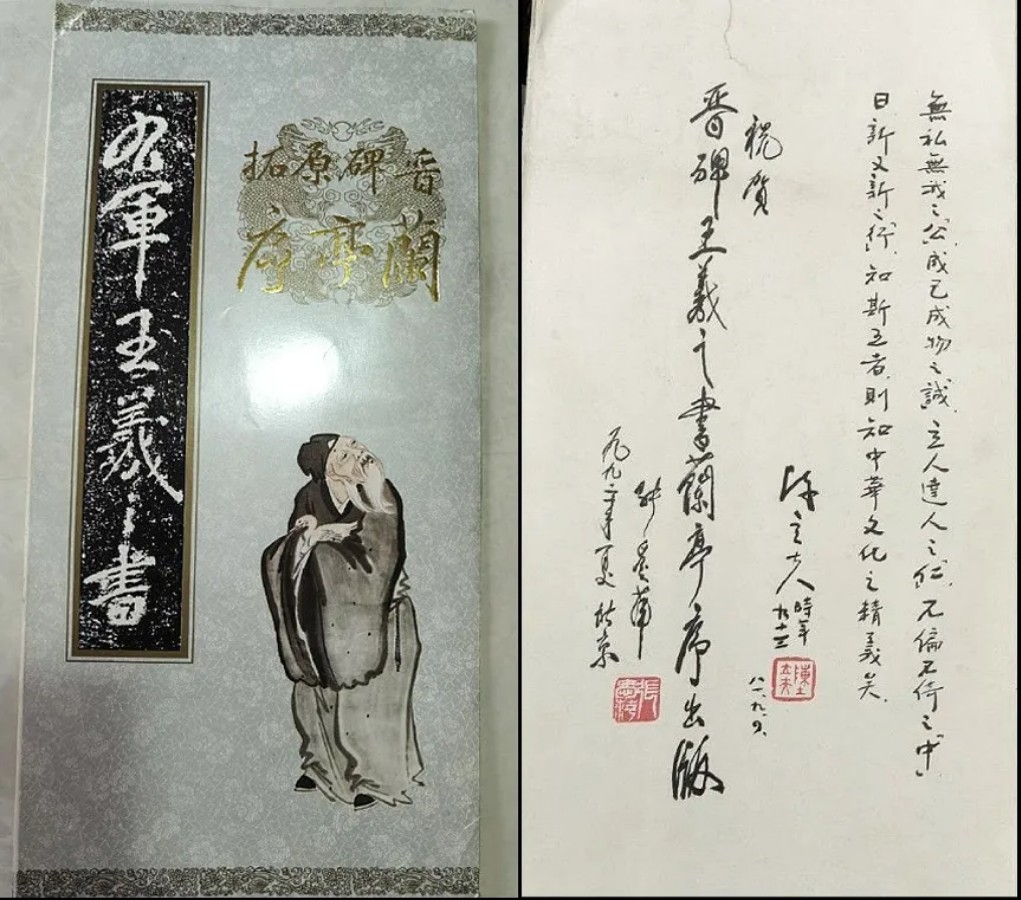 晉碑原拓
蘭亭序
右軍王羲之書
無私無我之公、成己成物之誠、立人達人之仁、不偏不倚之中、
日新又新之行、知斯五者、則知中華文化之精義矣.
陳立夫
時年
九十三
八一.九.
祝賀
晋碑王羲之書蘭亭序出版
一九九二年夏 京